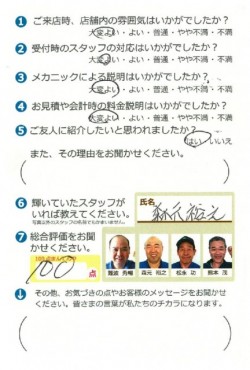 1 ご来店時、店舗内の雰囲気はいかがでしたか?
大変よい・よい・普通・やや不満・不満
2 受付時のスタッフの対応はいかがでしたか?
大変よい・よい・普通・やや不満・不満
3 メカニックによる説明はいかがでしたか?
大変よい・よい・普通・やや不満・不満
4 お見積や会計時の料金説明はいかがでしたか?
大変よい・よい・普通・やや不満・不満
5 ご友人に紹介したいと思われましたか?
はい・いいえ
また、その理由をお聞かせください。
6 輝いていたスタッフが
いれば教えてください。
氏名
7 総合評価をお聞
かせください。
100 点
松永 功
↓ その他、お気づきの点やお客様のメッセージをお聞かせ
ください。皆さまの言葉が私たちのチカラになります。